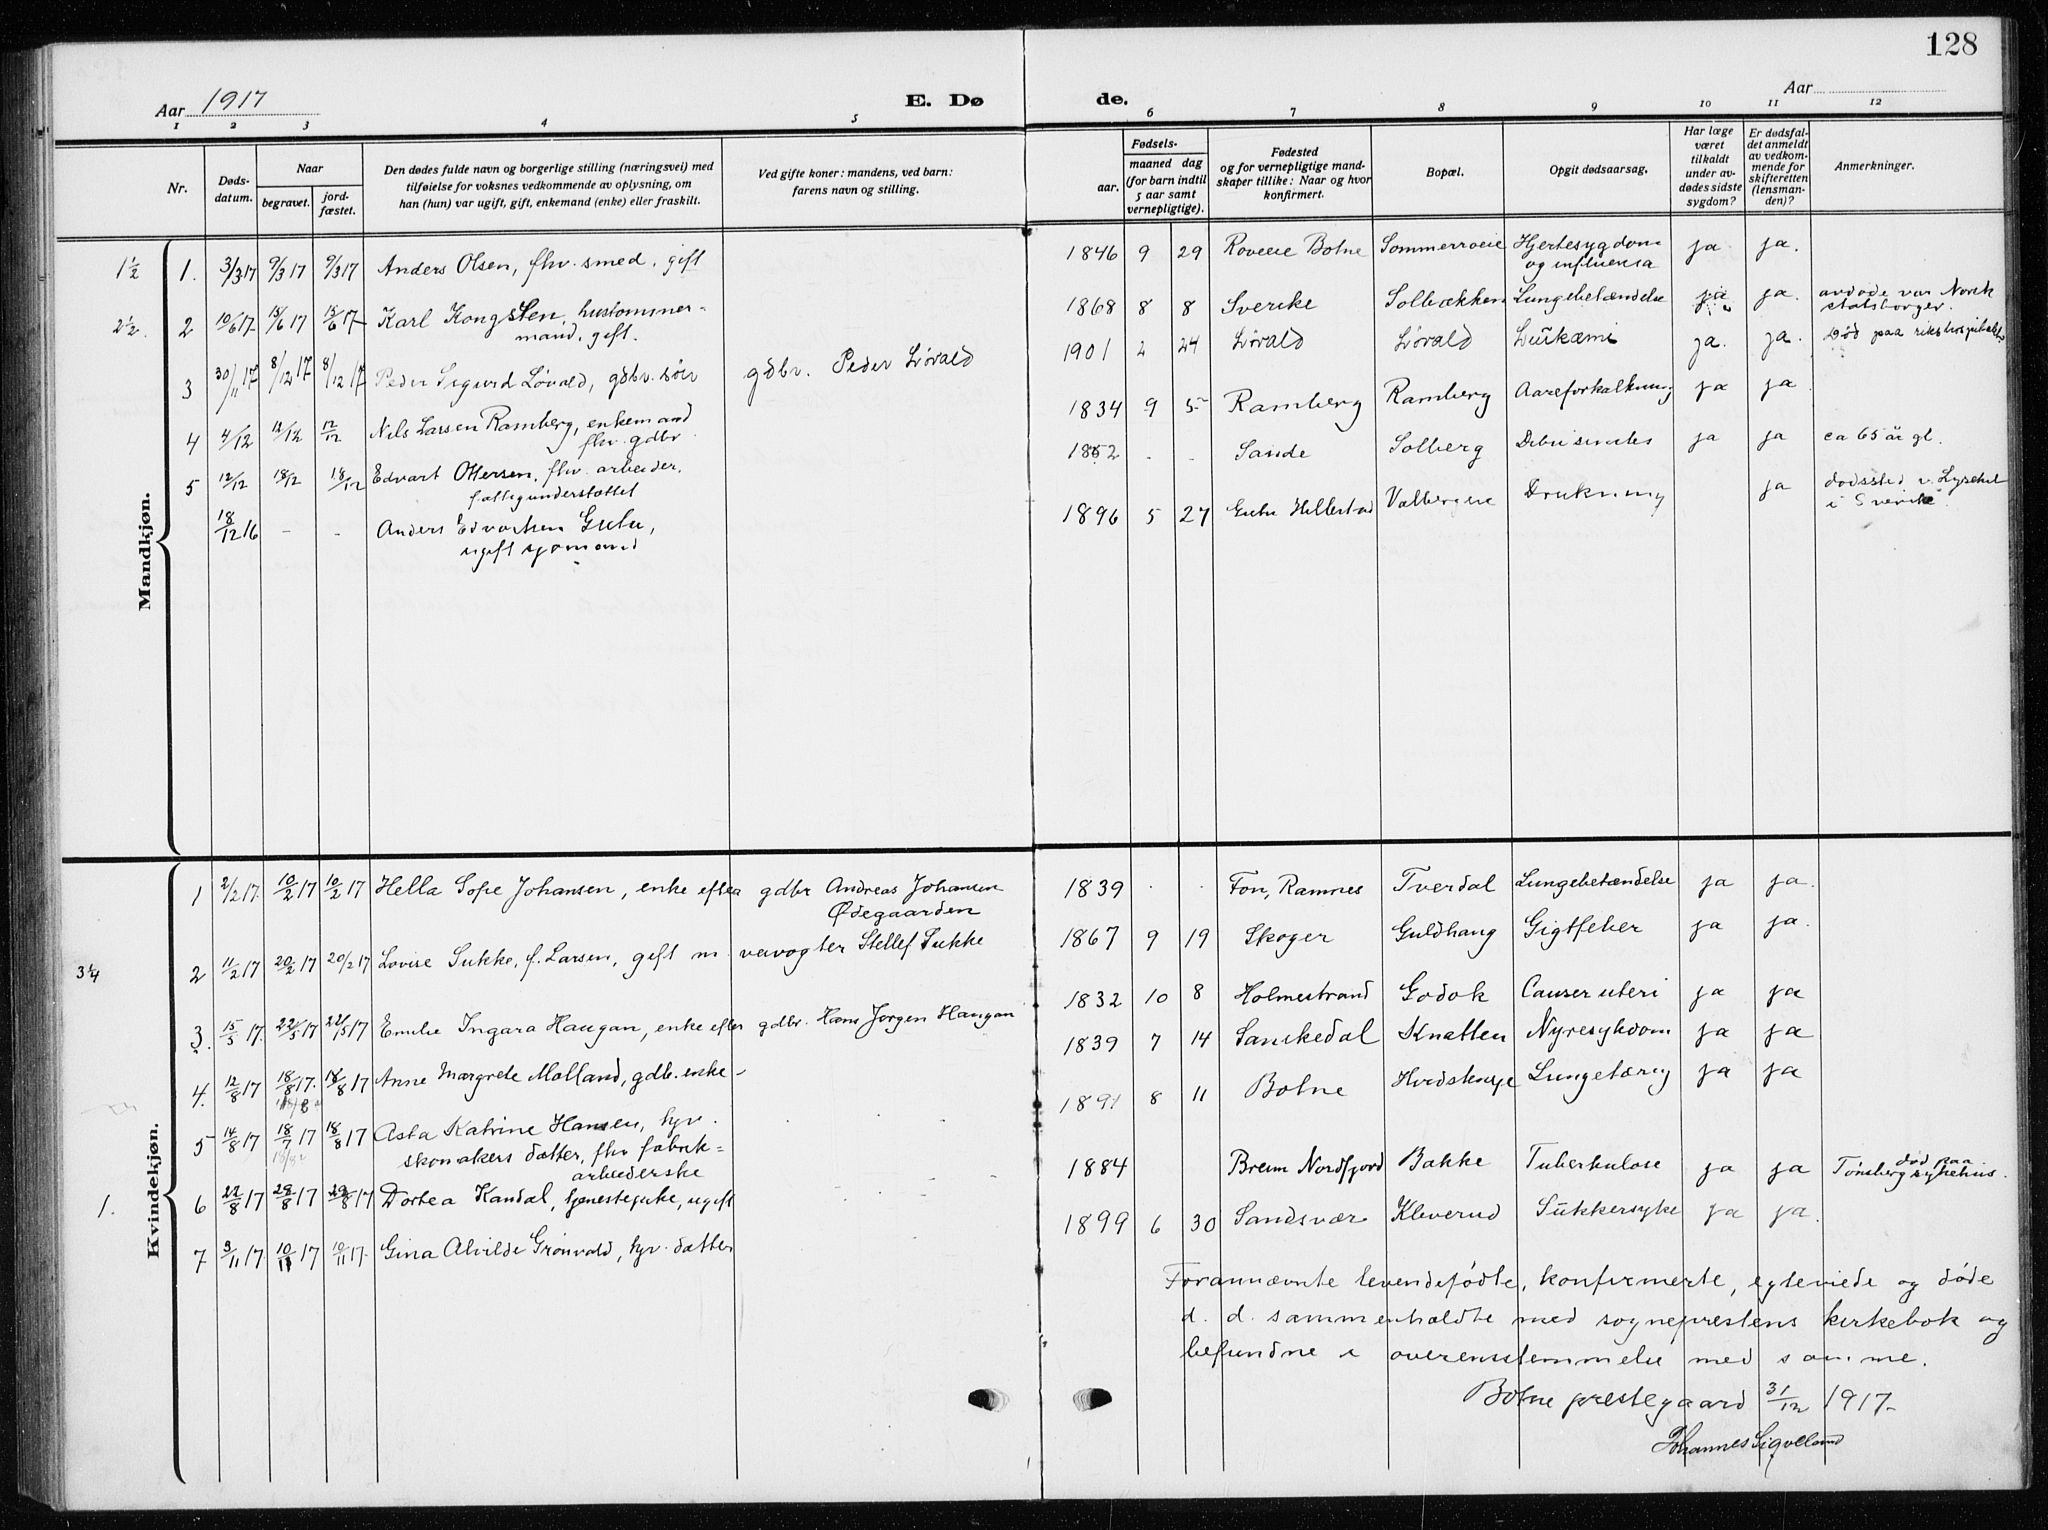 128
Aar 1917
E. Dø
de.
Aar
1 2 3 4 5 6 7 8 9 10 11 12
Nr.
Døds-
datum.
Naar
begravet.
jord-
fæstet.
Den dødes fulde navn og borgerlige stilling (næringsvei) med
tilføielse for voksnes vedkommende av oplysning, om
han (hun) var ugift, gift, enkemand (enke) eller fraskilt.
Ved gifte koner: mandens, ved barn:
farens navn og stilling.
Fødsels-
aar.
maaned dag
(for barn indtil
5 aar samt
vernepligtige).
Fødested
og for vernepligtige mand-
skaper tillike: Naar og hvor
konfirmert.
Bopæl.
Opgit dødsaarsag.
Har læge
været
tilkaldt
under av-
dødes sidste
sygdom?
Er dødsfal-
det anmeldt
av vedkom-
mende for
skifteretten
(lensman-
den)?
Anmerkninger.
Mandkjøn.
1½ 1. 3/3 17 9/3 17 9/3 17 Anders Olsen, fhv. smed, gift 1846 9 29 Roveeie Botne Sommerroeie Hjertesygdom ja ja.
og influensa
2½. 2 10/6 17 15/6 17 15/6 17 Karl Kongsten, hustømmer- 1868 8 8 Sverike Solbækken Lungebetændelse ja ja. avdøde var Norsk
mand, gift. statsborger.
3 30/11 17 8/12 17 8/12 17 Peder Sigurd Løvald, gdbr. søn gdbr. Peder Løvald 1901 2 24 Løvald Løvald Leukæmi ja. ja. Død paa rikshospitalet
4 4/12 12/12 12/12 Nils Larsen Ramberg, enkemand 1834 9 5 Ramberg Ramberg Aareforkalkning ja ja
fhv. gdbr.
5 12/12 18/12 18/12 Edvart Ottersen, fhv. arbeider, 1852 - - Sande Solberg ja ja ca 65 år gl.
fattigunderstøttet
18/12 16 - - Anders Edvartsen Gutu, 1896 5 27 Gutu Hillestad Drukning ja dødssted v. Lysekil
ugift sjømand i Sverike
Kvindekjøn.
1 2/2 17. 10/2 17 10/2 17 Hella Sofie Johansen, enke efter gdbr Andreas Johansen 1839 . . Fon, Ramnes Tverdal Lungebetændelse ja ja.
Ødegaarden
3¼ 2 11/2 17 20/2 17 20/2 17 Lovise Sukke, f. Larsen, gift m. vevogter Stellef Sukke 1867 9 19 Skoger Guldhaug Gigtfeber ja ja.
3. 15/5 17. 22/5 17 22/5 17 Emilie Ingara Haugan, enke efter gdbr. Hans Jørgen Haugan 1832 10 8 Holmestrand Godok Cancer uteri ja ja
4. 12/8 17 18/8 17. 18/8 17 Anne Margrete Molland, gdb. enke - 1839 7 14 Sannkedal Knatten Nyresykdom ja ja
5 14/8 17 18/7 17 18/8 17 Asta Katrine Hansen, hjv. 1891 8 11 Botne Lungetæring ja ja
skomakers datter, fhv fabrik-
arbeiderske
1. 6 22/8 17 29/8 17 29/8 17 Dortea Kandal, tjenestepike, ugift 1884 Breim Nordfjord Bakke Tuberkulose ja ja død paa
Tønsberg sykehus.
7 3/11 17. 10/11 17 10/11 17. Gina Alvilde Grønvold, hjv. datter 1899 6 30 Sandsvær Kleverud Sukkersyke ja ja.
Forannævnte levendefødte, konfirmerte, egteviede og døde
d. d. sammenholdte med sogneprestens kirkebok og
befundne i overensstemmelse med samme.
Botne prestegaard 31/12 1917-
Johannes Sigveland